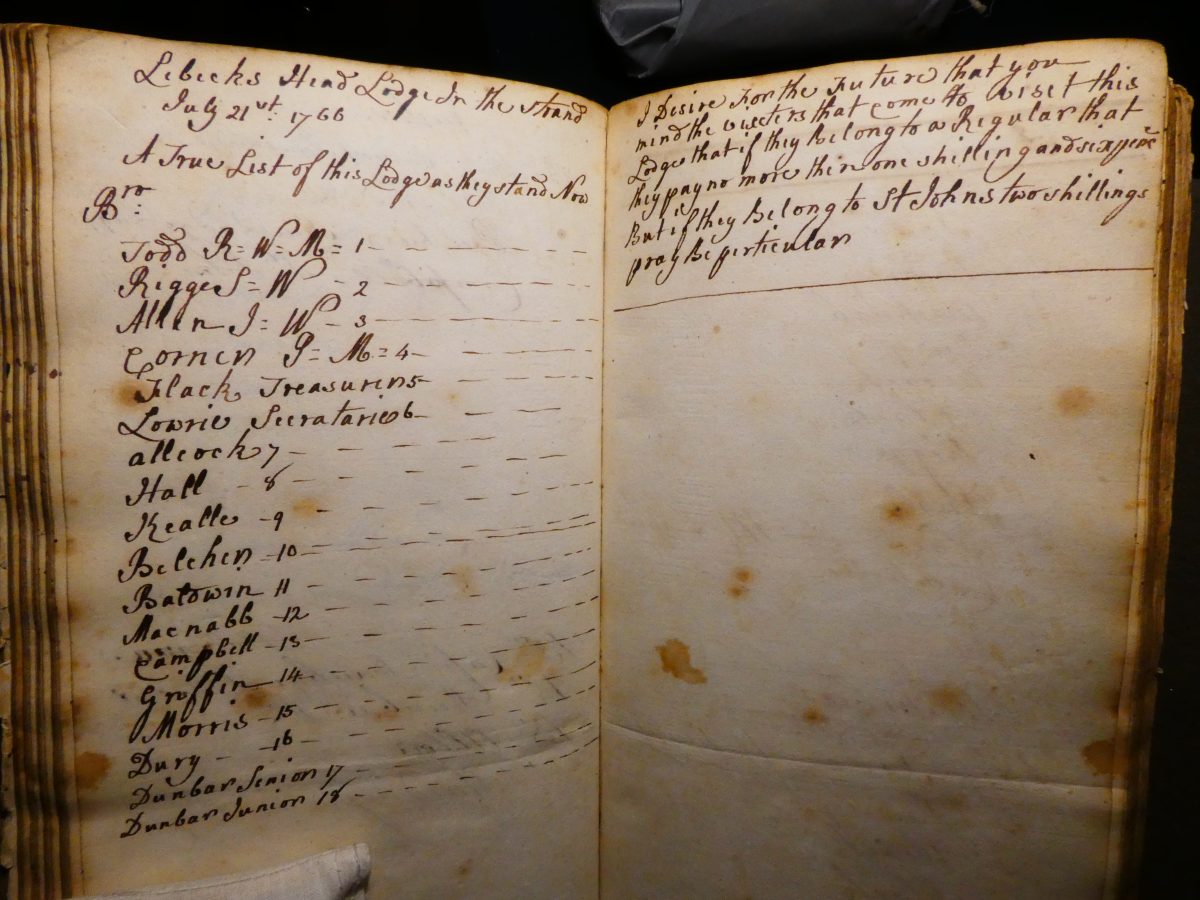 Lebecks Head Lodge In the Strand
July 21st: 1766
A True List of this Lodge as they stand Now
Bro:
Todd R=W=M=1
Rigge S=W - 2
Allen J=W - 3
Corner P=M=4
Flack Treasurer 5
Lowrie Secratarie 6
allcock 7
Hall - 8
Kealle - 9
Belcher - 10
Batdwin 11
Macnabb - 12
Campbell - 13
Griffin 14
Morris - 15
Dury - 16
Dunbar Senior 17
Dunbar Junior 18
I Desire For the Future that you
mind the viseters that come to viset this
Lodge that if they Belong to a Regular that
they pay no more then one shilling and sixpence
But if they Belong to St Johns two shillings
pray Be perticular